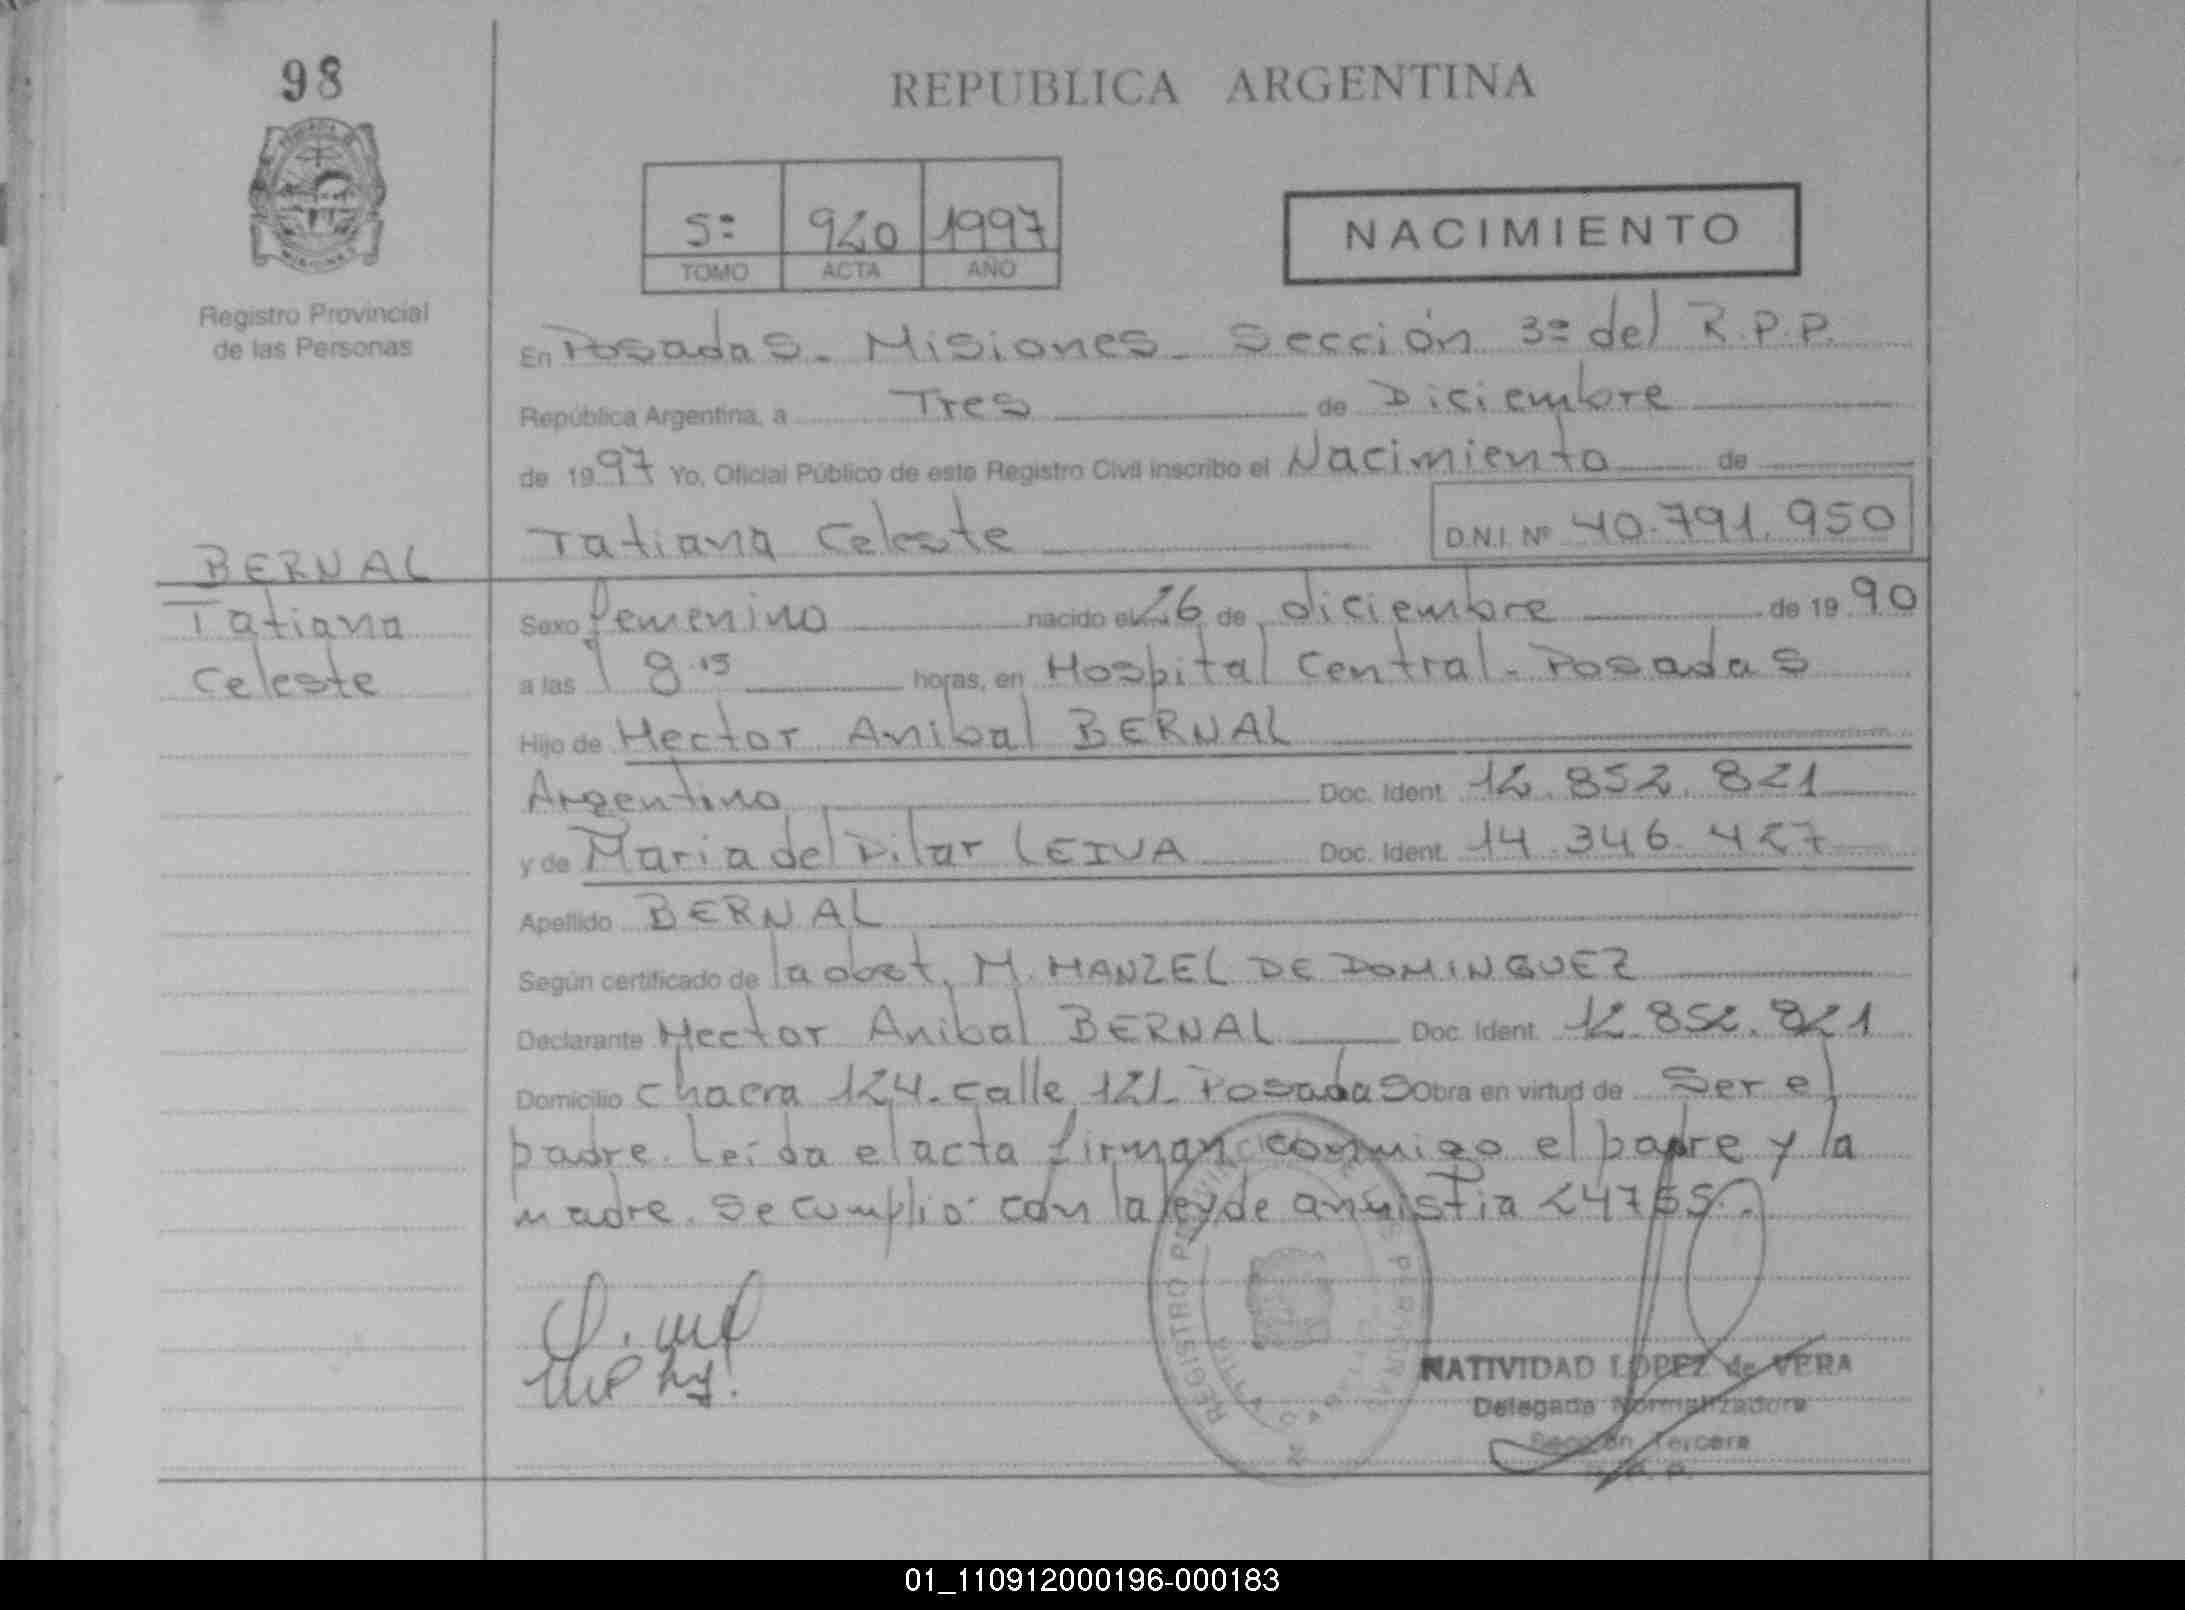 98
REPUBLICA ARGENTINA
5º 920 1997
TOMO ACTA AÑO
NACIMIENTO
Registro Provincial
de las Personas
En Posadas. Misiones. Sección 3º del R.P.P.
República Argentina, a Tres de Diciembre
de 1997 Yo, Oficial Público de este Registro Civil inscribo el Nacimiento de
Tatiana Celeste D.N.I. Nº 40.791.950
BERNAL
Tatiana
Celeste
Sexo femenino nacido el 26 de diciembre de 1990
a las 8.15 horas, en Hospital Central. Posadas
Hijo de Hector Anibal BERNAL
Argentino Doc. Ident. 12.852.821
y de Maria del Pilar LEIVA Doc. Ident. 14.346.427
Apellido BERNAL
Según certificado de la obst. M. MANZEL DE DOMINGUEZ
Declarante Hector Anibal BERNAL Doc. Ident. 12.852.821
Domicilio Chacra 124. calle 121. Posadas Obra en virtud de Ser el
padre. Leída el acta firman conmigo el padre y la
madre. Se cumplió con la ley de amnistia 24755.
REGISTRO PERSONAS
NATIVIDAD LOPEZ de VERA
Delegada Normalizadora
Sección Tercera
01_110912000196-000183